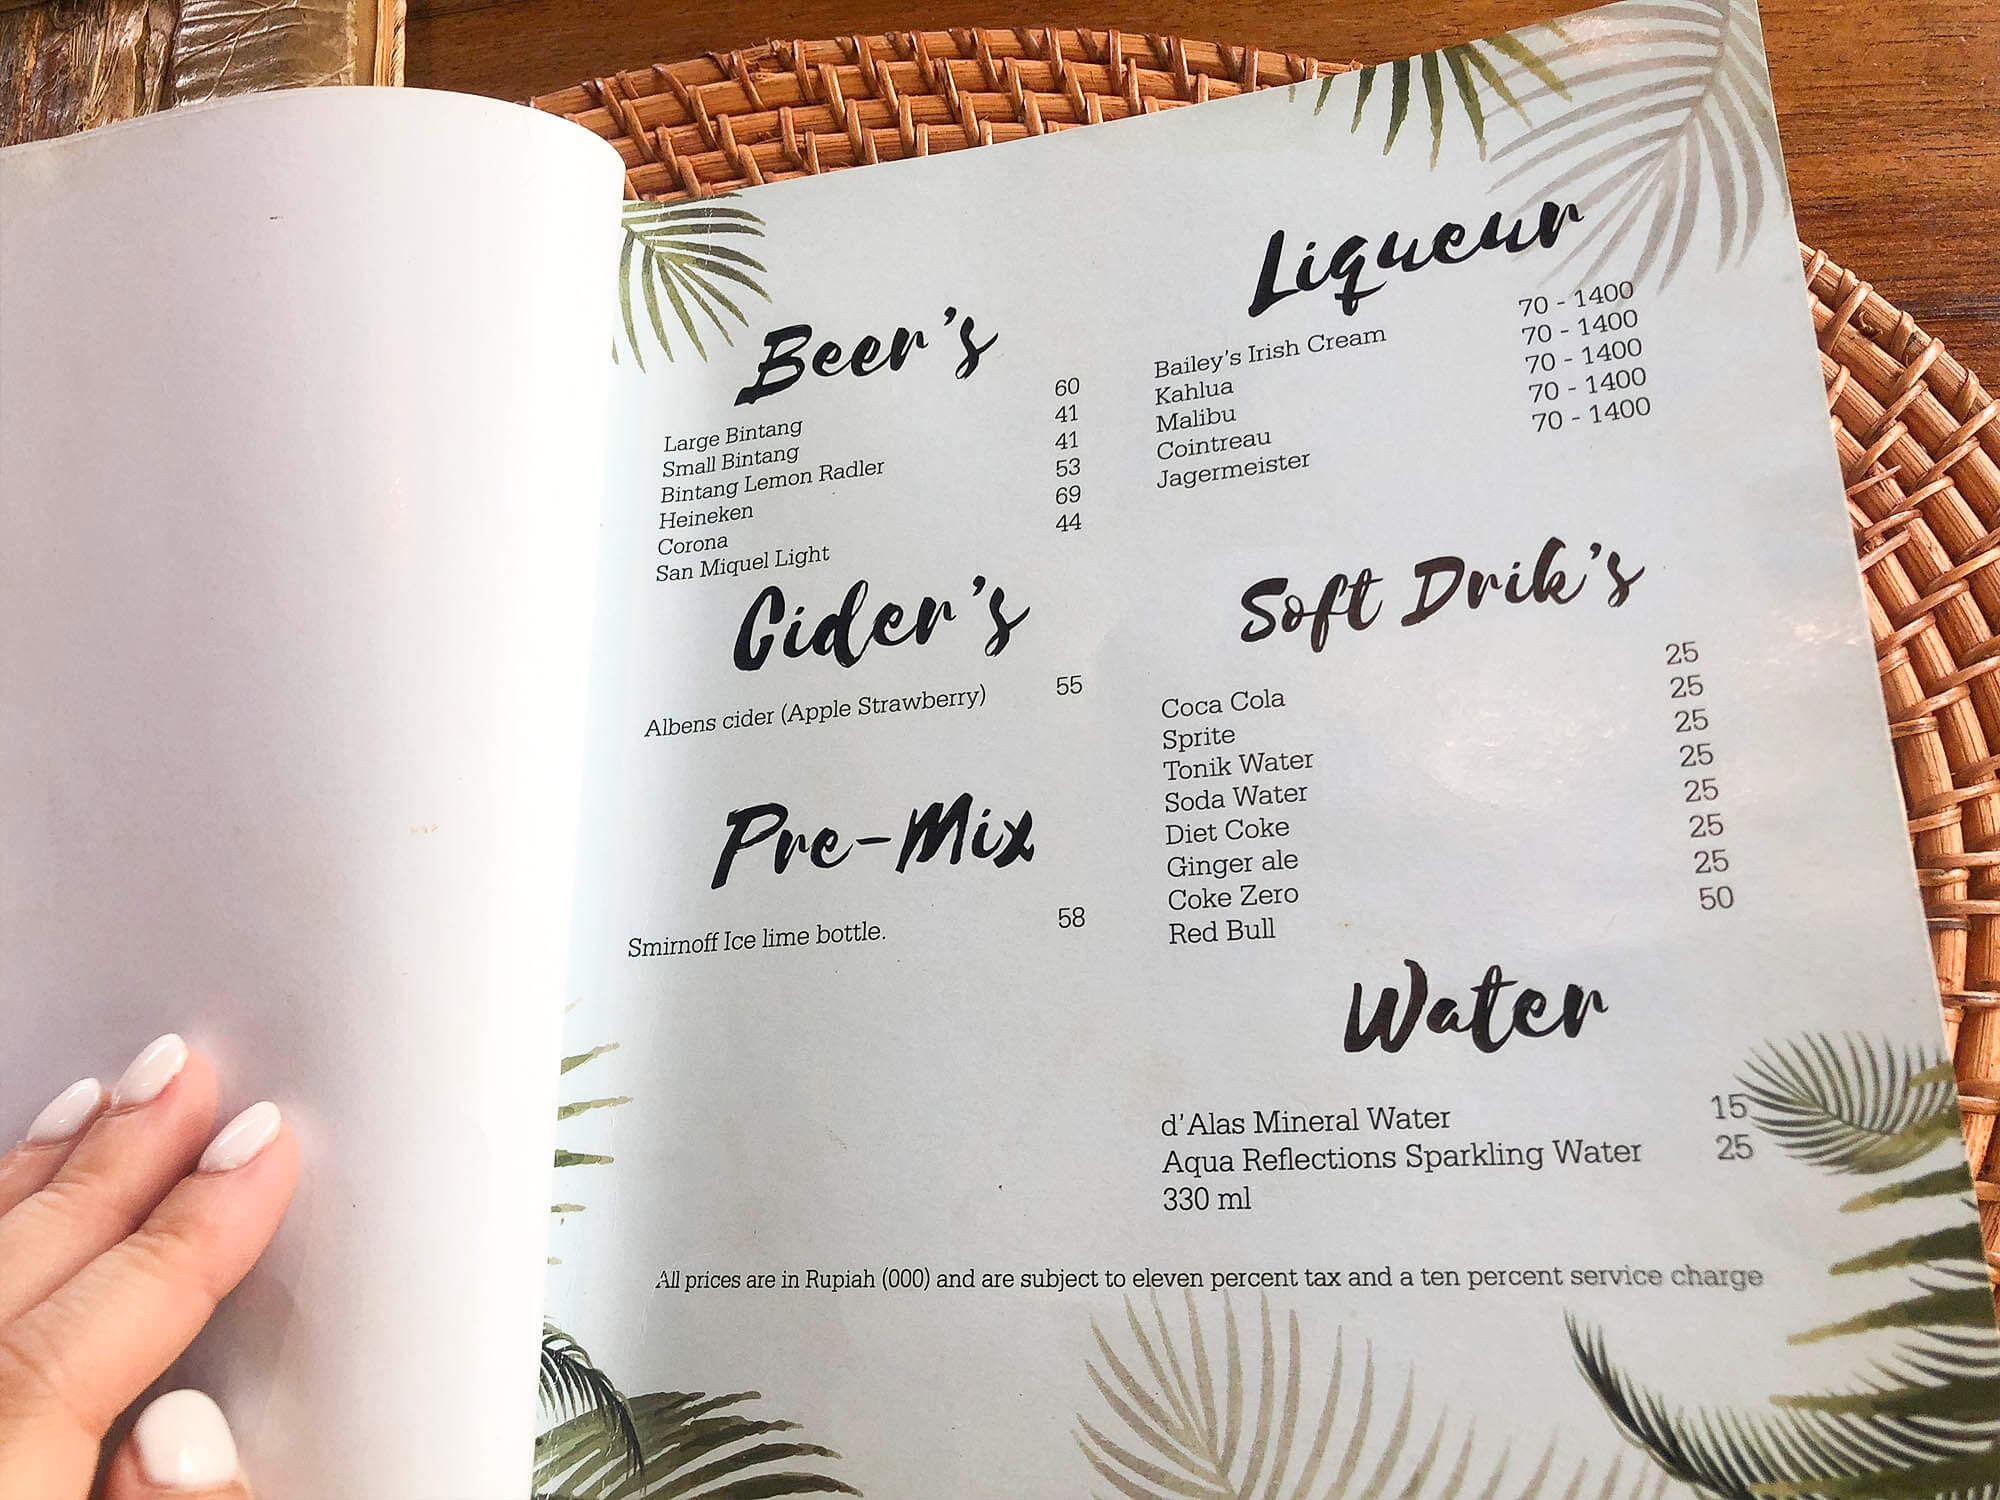 Beer's
Large Bintang 60
Small Bintang 41
Bintang Lemon Radler 41
Heineken 53
Corona 69
San Miquel Light 44
Cider's
Albens cider (Apple Strawberry) 55
Pre-Mix
Smirnoff Ice lime bottle. 58
Liqueur
Bailey's Irish Cream 70 - 1400
Kahlua 70 - 1400
Malibu 70 - 1400
Cointreau 70 - 1400
Jagermeister 70 - 1400
Soft Drik's
Coca Cola 25
Sprite 25
Tonik Water 25
Soda Water 25
Diet Coke 25
Ginger ale 25
Coke Zero 25
Red Bull 50
Water
d'Alas Mineral Water 15
Aqua Reflections Sparkling Water 25
330 ml
All prices are in Rupiah (000) and are subject to eleven percent tax and a ten percent service charge